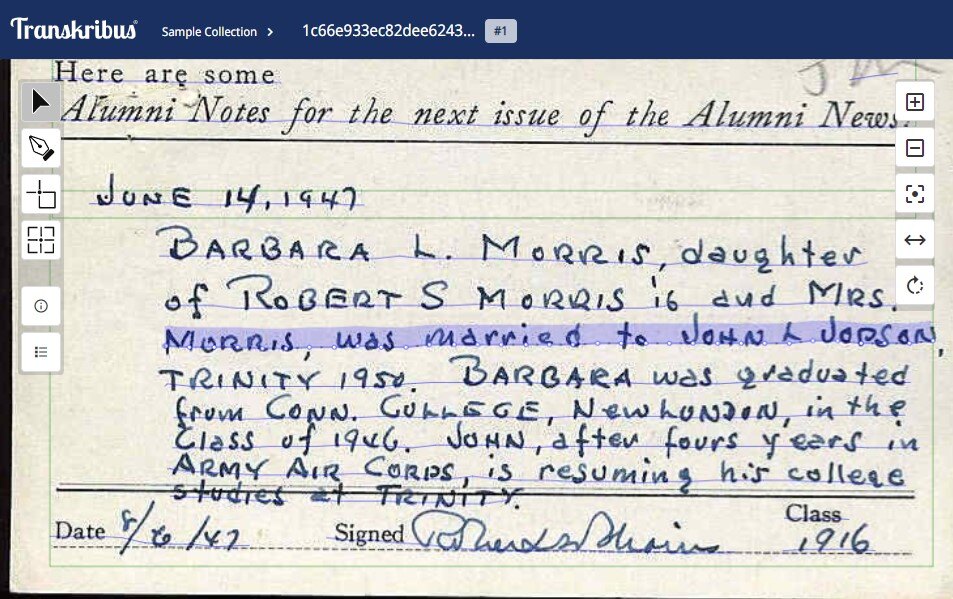 Transkribus Sample Collection > 1c66e933ec82dee6243... #1
Here are some
Alumni Notes for the next issue of the Alumni News.
JUNE 14, 1947
BARBARA L. MORRIS, daughter
of ROBERT S MORRIS '16 and MRS.
MORRIS, was married to JOHN L JOPSON,
TRINITY 1950. BARBARA was graduated
from CONN. COLLEGE, NEW LONDON, in the
Class of 1946. JOHN, after fours years in
ARMY AIR CORPS, is resuming his college
studies at TRINITY.
Date 8/6/47 Signed Class
1916